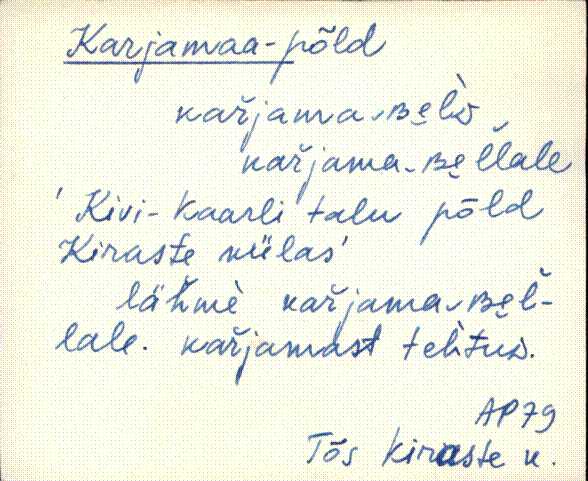 Karjamaa-põld
kaŕjama-ʙe̬lᴅ̀
kaŕjama-ʙe̬l̆lale
'Kivi-Kaarli talu põld
Kiraste külas'
läh̆mè kaŕjama-ʙe̬l̆-
lale. kaŕjamast tehtus.
AP79
Tõs Kiraste k.